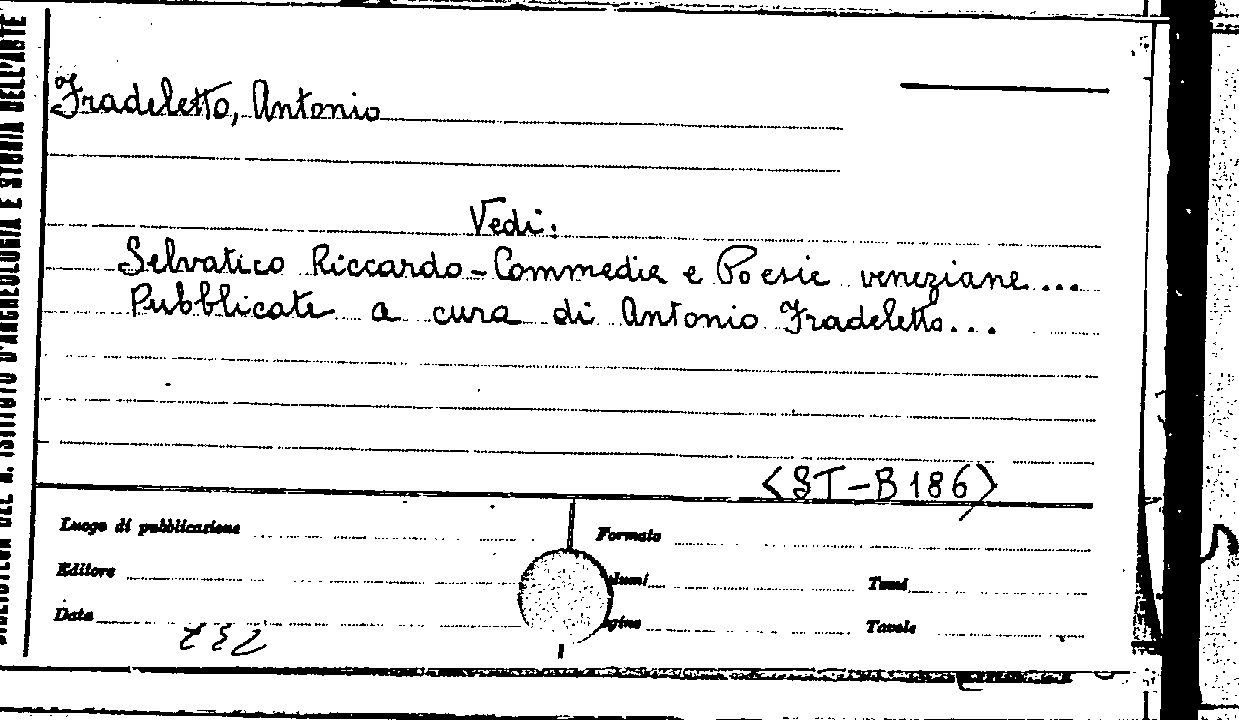 BIBLIOTECA DEL R. ISTITUTO D'ARCHEOLOGIA E STORIA DELL'ARTE
Fradeletto, Antonio
Vedi:
Selvatico Riccardo - Commedie e Poesie veneziane...
Pubblicate a cura di Antonio Fradeletto...
<ST-B186>
Luogo di pubblicazione
Formato
Editore
lumi
Tomi
Data
gine
Tavole